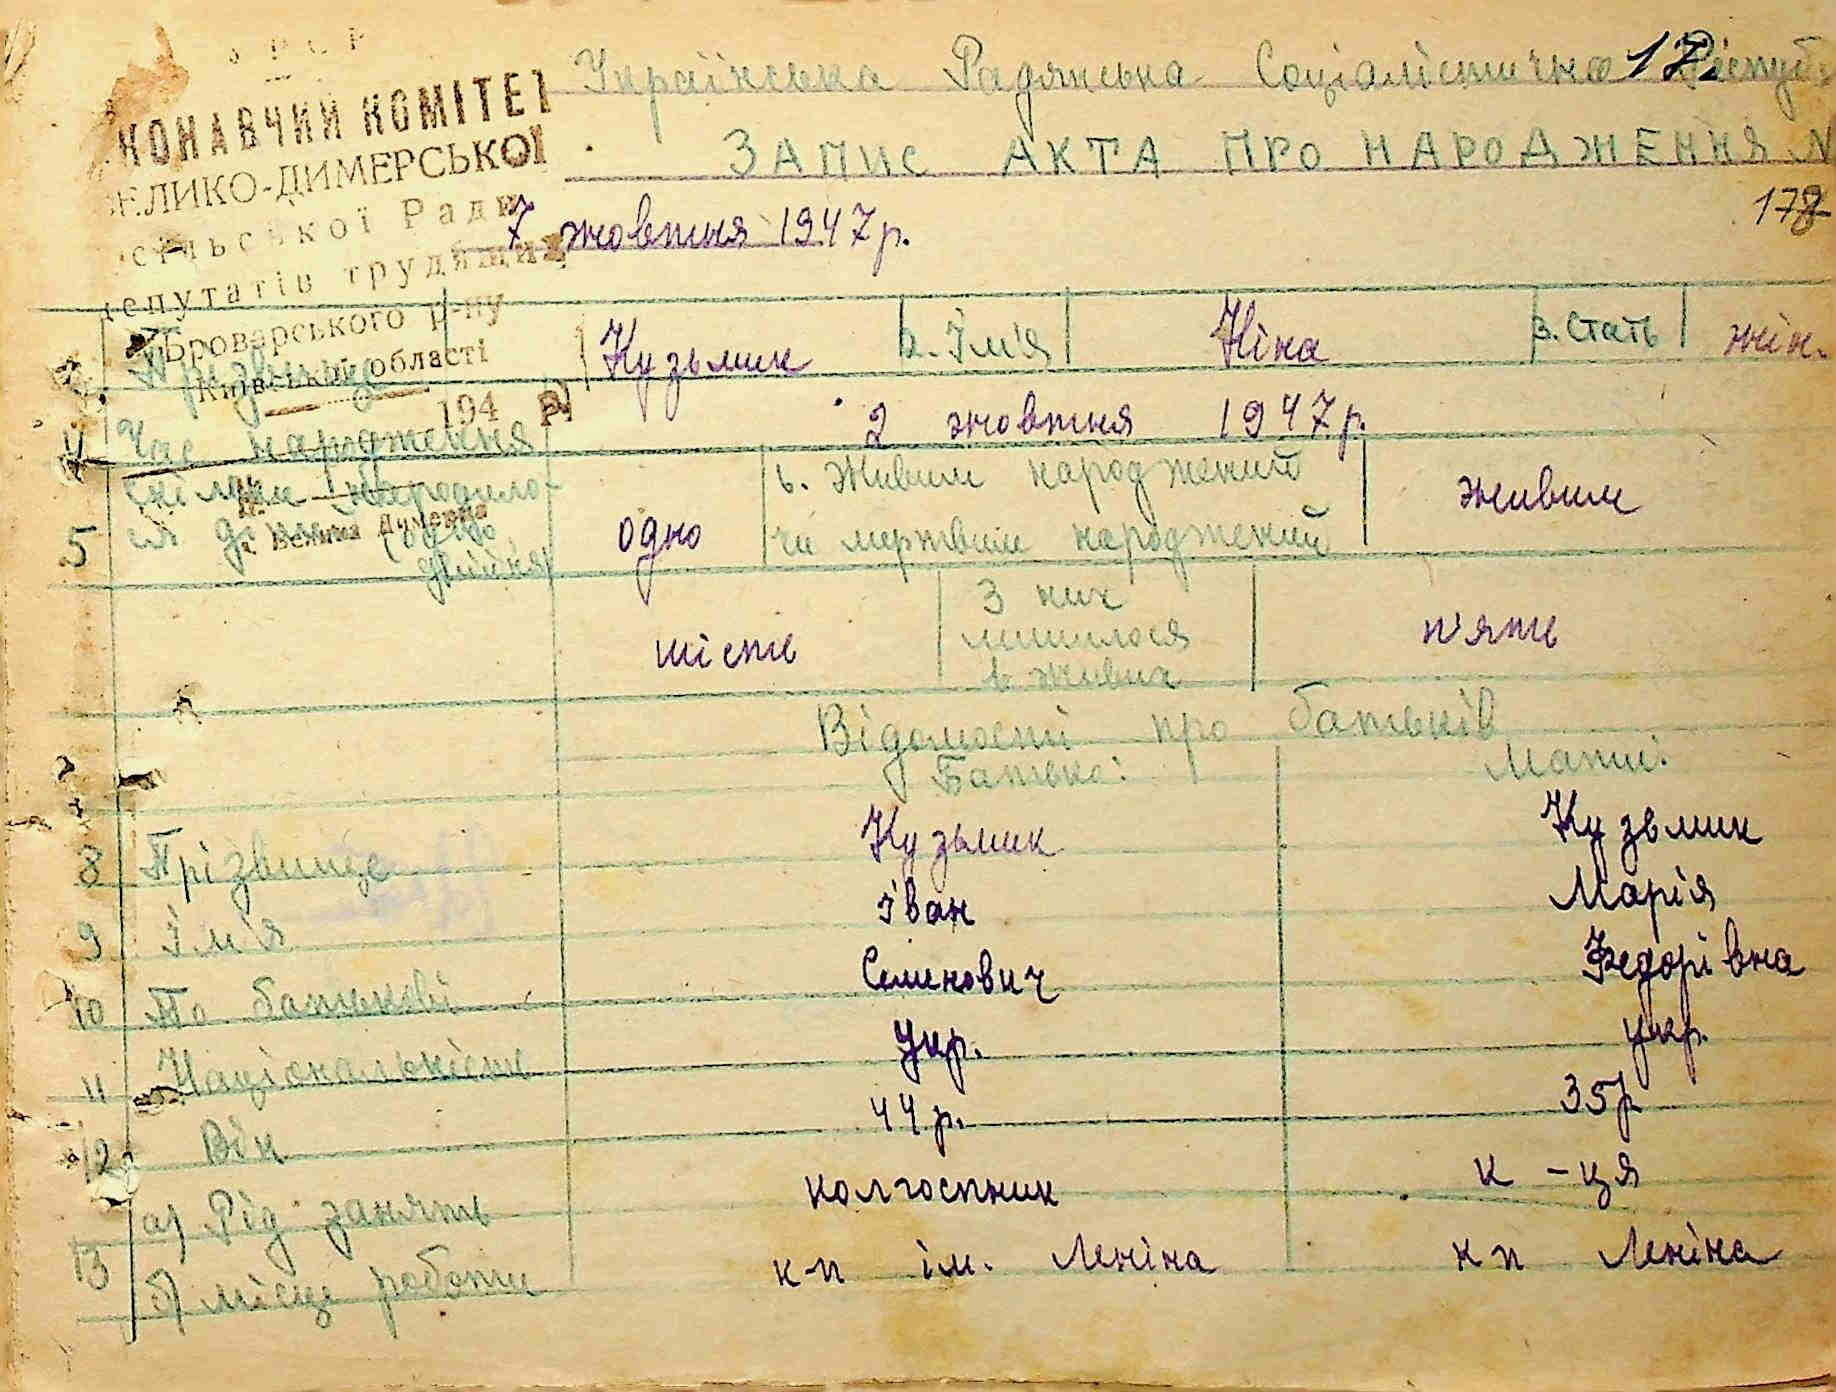 УРСР
Українська Радянська Соціалістична 17. Респуб
КОНАВЧИЙ КОМІТЕТ
ЗАПИС АКТА ПРО НАРОДЖЕННЯ N
ЕЛИКО-ДИМЕРСЬКОЇ
сільської Ради
178
7 жовтня 1947 р.
епутатів трудящих
Броварського р-ну
Київської області
194 р.
Прізвище Кузьмик 2. Ім'я Ніна 3. Стать жін.
4 Час народження 2 жовтня 1947 р.
5 скільки народило-
ся дітей одно
двійня
с. Велика Димерка
6. Живим народжений
чи мертвим народжений живим
шість З них
лишилося
в живих п'ять
Відомості про батьків
Батько: Мати:
8 Прізвище Кузьмик Кузьмик
9 Ім'я Іван Марія
10 По батькові Семенович Федорівна
11 Національність Укр. укр.
12 Вік 44 р. 35 р
13 а) Рід занять колгоспник к-ця
б) місце роботи к-п ім. Леніна к п Леніна